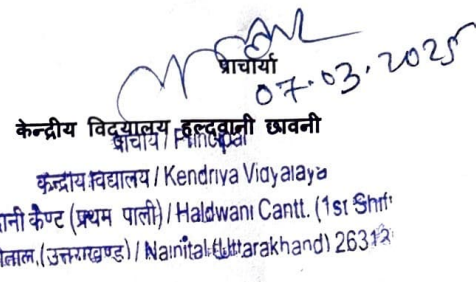 प्राचार्या
07.03.2025
केन्द्रीय विद्यालय हल्द्वानी छावनी
प्राचार्य / Principal
केन्द्रीय विद्यालय / Kendriya Vidyalaya
कैण्ट (प्रथम पाली) / Haldwani Cantt. (1st Shift
(उत्तराखण्ड) / Nainital (Uttarakhand)